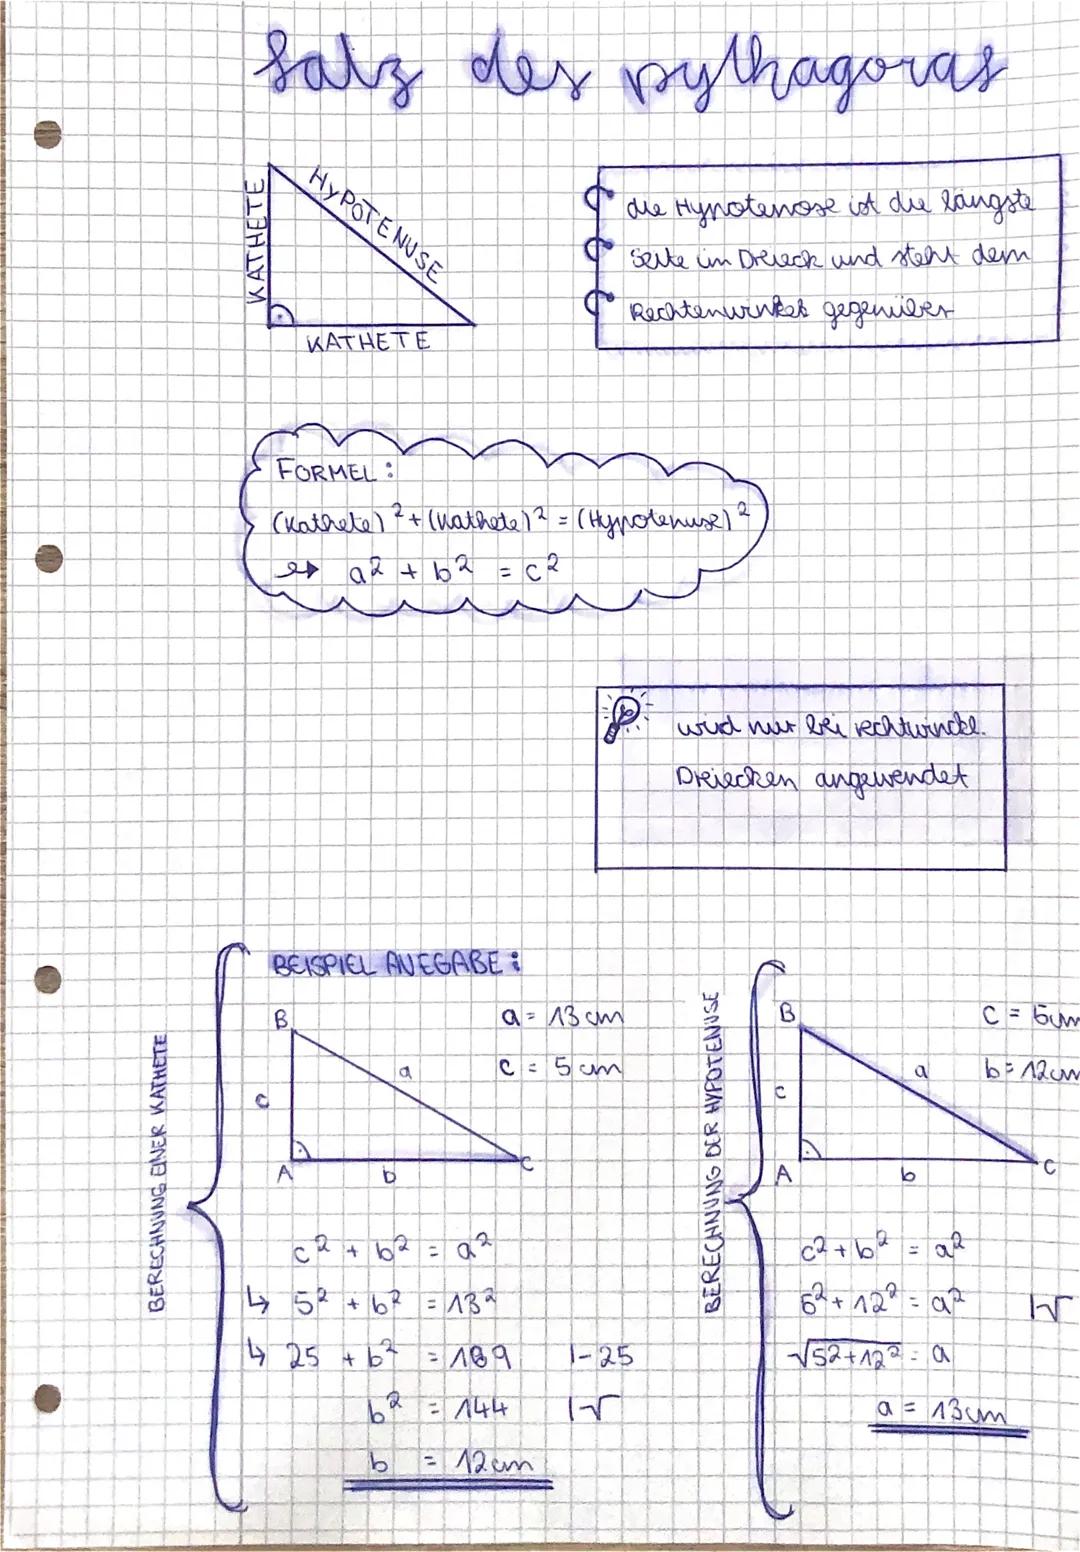 Satz des pythagoras
KATHETE
HYPOTENUSE
KATHETE
die Hypotenose ist die längste
Seite im Dreieck und steht dem
Rechtenwinkel gegenüber
FORMEL:
(Kathete)² + (Kathete)² = (Hypotenuse)²
↪ a² + b² = c²
wird nur bei rechtwinckl.
Dreiecken angewendet
BERECHNUNG EINER KATHETE
BEISPIEL
B
a = 13 cm
c = 5 cm
a
c
A
b
C
c² + b² = a²
↳ 5² + b² = 13²
↳ 25 + b² = 169 |-25
b² = 144 |√
b = 12 cm
BERECHNUNG DER HYPOTENUSE
B
c = 5cm
b = 12cm
a
c
A
b
C
c² + b² = a²
5² + 12² = a² |√
√5²+12² = a
a = 13cm